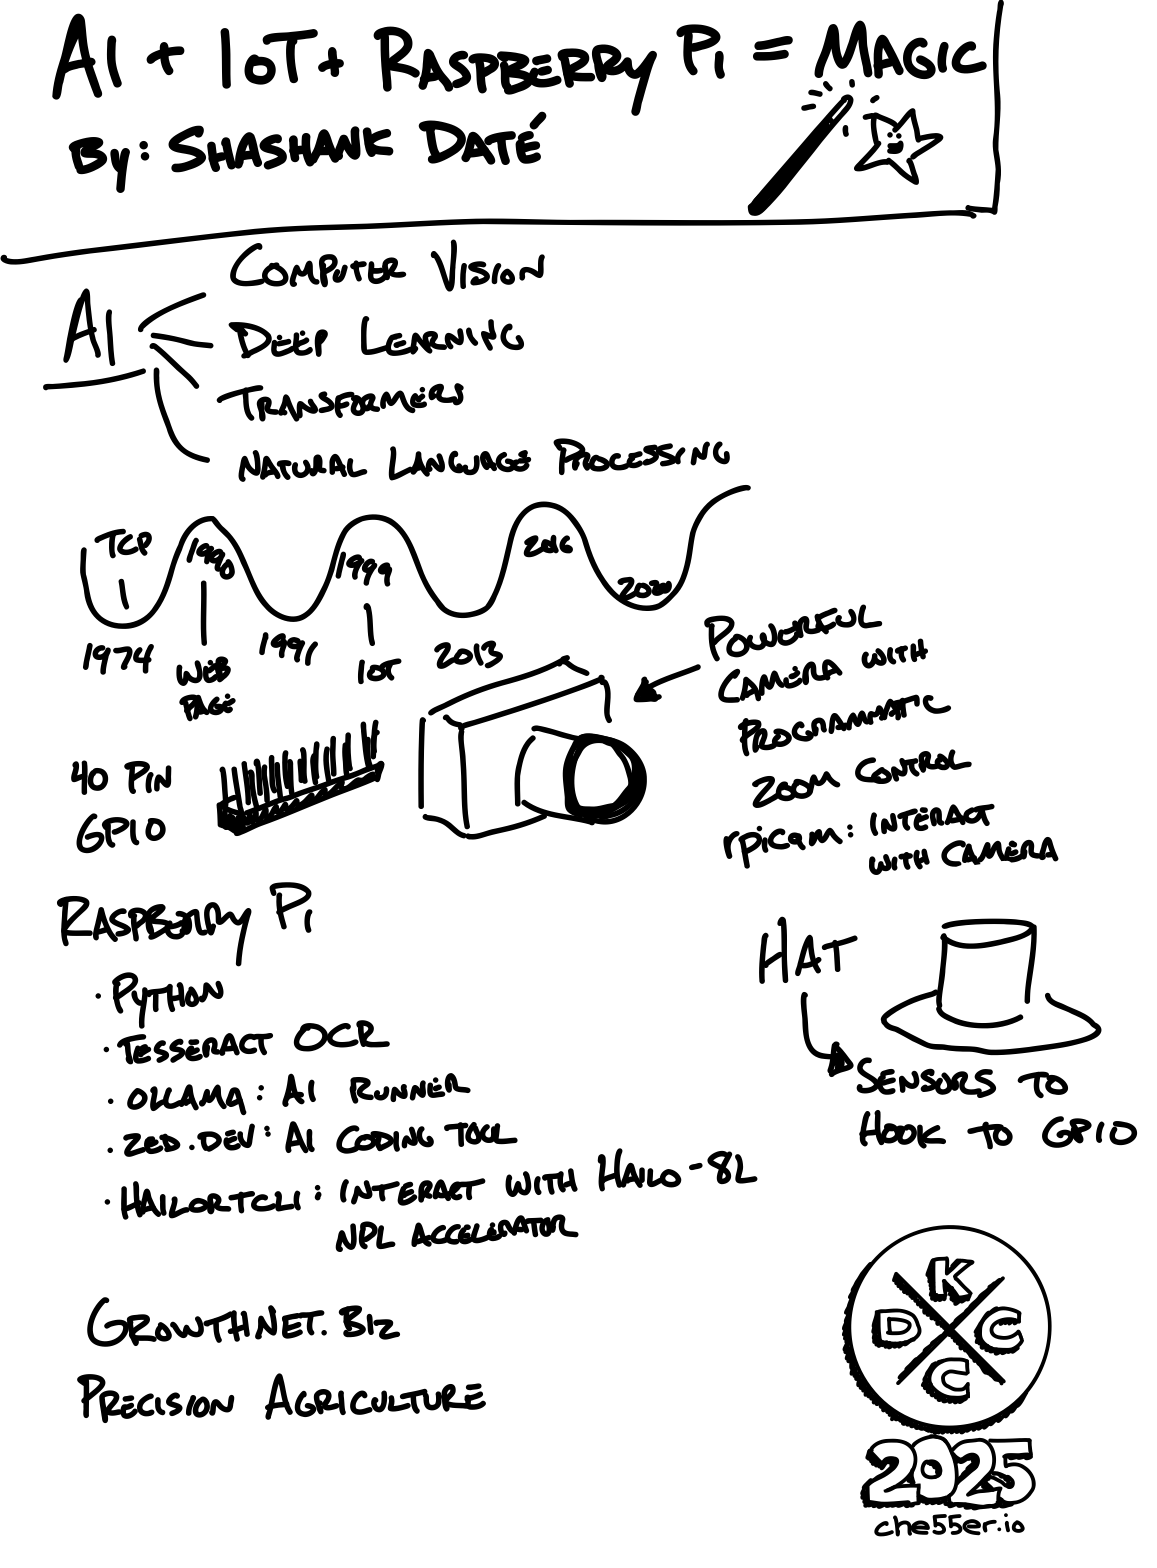 AI + IOT + RASPBERRY PI = MAGIC
BY: SHASHANK DATÉ
AI
COMPUTER VISION
DEEP LEARNING
TRANSFORMERS
NATURAL LANGUAGE PROCESSING
TCP
1990
1999
2016
2020
1974
WEB
PAGE
1991
IOT
2013
POWERFUL
CAMERA WITH
PROGRAMMATIC
ZOOM CONTROL
rpicam: INTERACT
WITH CAMERA
40 PIN
GPIO
RASPBERRY PI
· PYTHON
· TESSERACT OCR
· OLLAMA: AI RUNNER
· ZED.DEV: AI CODING TOOL
· HAILORTCLI: INTERACT WITH HAILO-8L
NPL ACCELERATOR
HAT
SENSORS TO
HOOK TO GPIO
GROWTHNET.BIZ
PRECISION AGRICULTURE
K
D C
C
2025
che55er.io